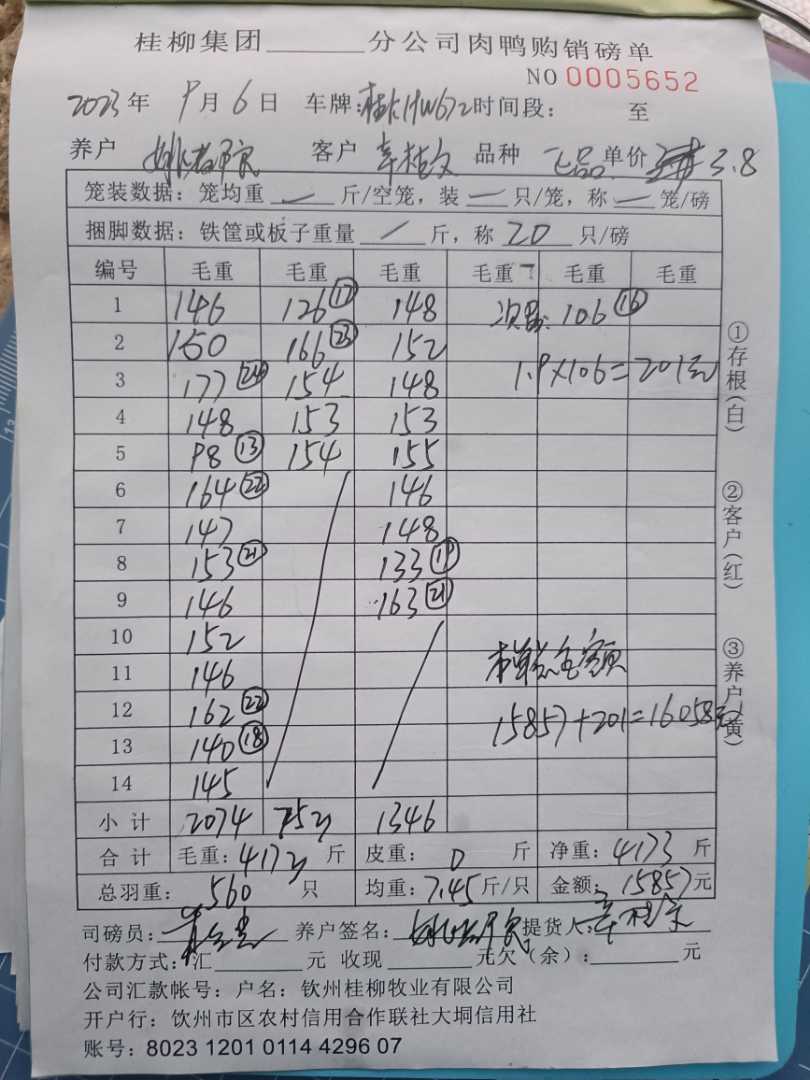 桂柳集团______分公司肉鸭购销磅单
NO 0005652
2023年 9月6日 车牌: 时间段: 至
养户 客户 品种 正品 单价 3.8
笼装数据: 笼均重 — 斤/空笼, 装 — 只/笼, 称 — 笼/磅
捆脚数据: 铁筐或板子重量 / 斤, 称 20 只/磅
编号 毛重 毛重 毛重 毛重 毛重 毛重
1 146 126⑰ 148 106⑯
2 150 166㉓ 152
3 177㉔ 154 148 1.9×106=201元
4 148 153 153
5 98⑬ 154 155
6 164㉒ 146
7 147 148
8 153㉑ 133⑲
9 146 163㉑
10 152
11 146 本单总金额
12 162㉒ 15857+201=16058元
13 140⑱
14 145
小计 2074 753 1346
合计 毛重: 4173 斤 皮重: 0 斤 净重: 4173 斤
总羽重: 560 只 均重: 7.45 斤/只 金额: 15857 元
司磅员: 养户签名: 提货人:
付款方式: 汇______元 收现______元欠(余):______元
公司汇款帐号: 户名: 钦州桂柳牧业有限公司
开户行: 钦州市区农村信用合作联社大垌信用社
账号: 8023 1201 0114 4296 07
①存根(白)
②客户(红)
③养户(黄)